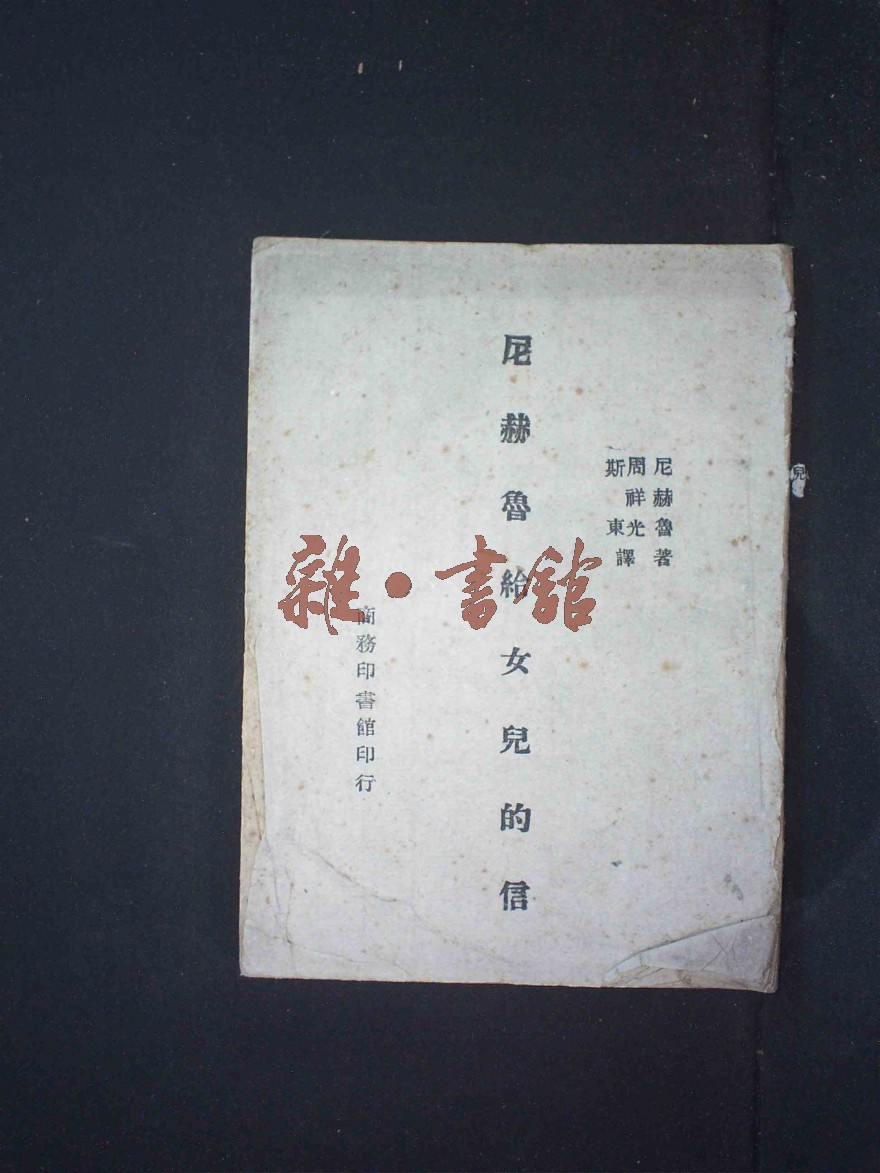 尼赫魯著
周祥光
斯東
譯
尼赫魯給女兒的信
商務印書館印行
雜·書館
兒